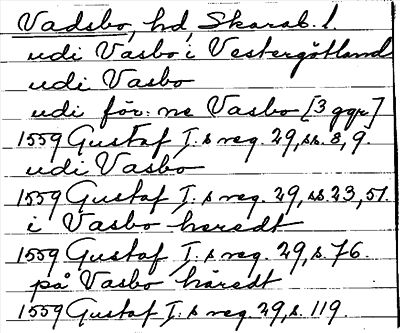 Vadsbo, hd, Skarab. l.
udi Vasbo i Vestergötland
udi Vasbo
udi för: ne Vasbo [3 ggr]
1559 Gustaf I:s reg. 29, ss. 8, 9.
udi Vasbo
1559 Gustaf I:s reg. 29, ss 23, 51.
i Vasbo heredt
1559 Gustaf I:s reg. 29, s. 76.
på Vasbo häredt
1559 Gustaf I:s reg. 29, s. 119.